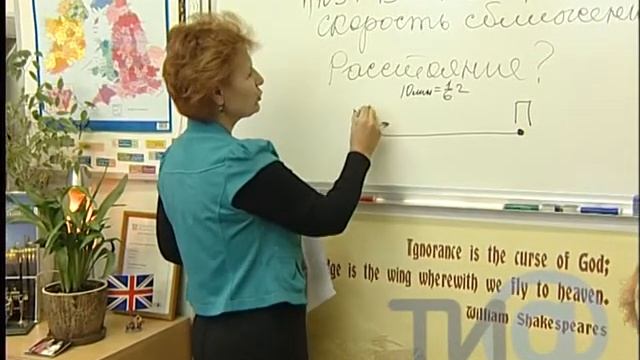 скорость сближени
Расстояние?
10мин = 1/6 2
П
Ignorance is the curse of God;
dge is the wing wherewith we fly to heaven.
William Shakespeares
ТИ